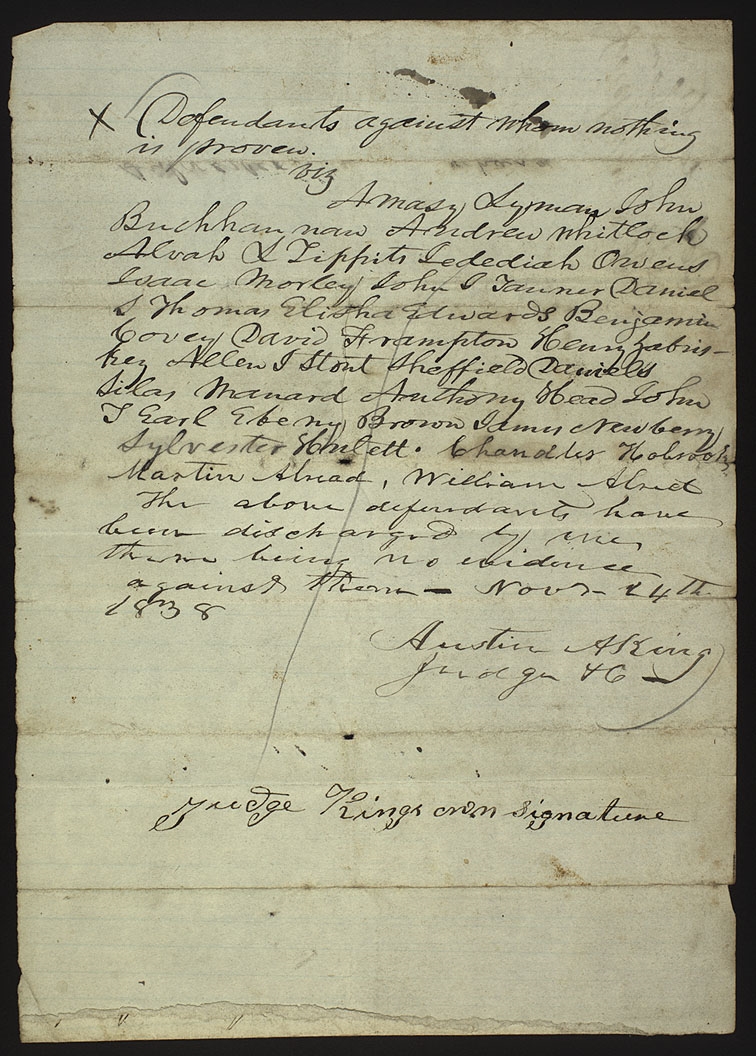 X Defendants against whom nothing
is proven.
viz
Amasy Lyman John
Buchhannan Andrew Whitlock
Alvah L Tippits Jedediah Owens
Isaac Morley John J Tanner Daniel
S Thomas Elisha Edwards Benjamin
Covey David Frampton Henry Zabris-
key Allen J Stout Sheffield Daniels
Silas Manard Anthony Head John
T Earl Ebenzy Brown James Newberry
Sylvester Hulett. Chandler Holbrook
Martin Alread, William Alred
The above defendants have
been discharged by me
there being no evidence
against them — Novr 24th
1838
Austin A King
Judge &C —
Judge Kings own signature